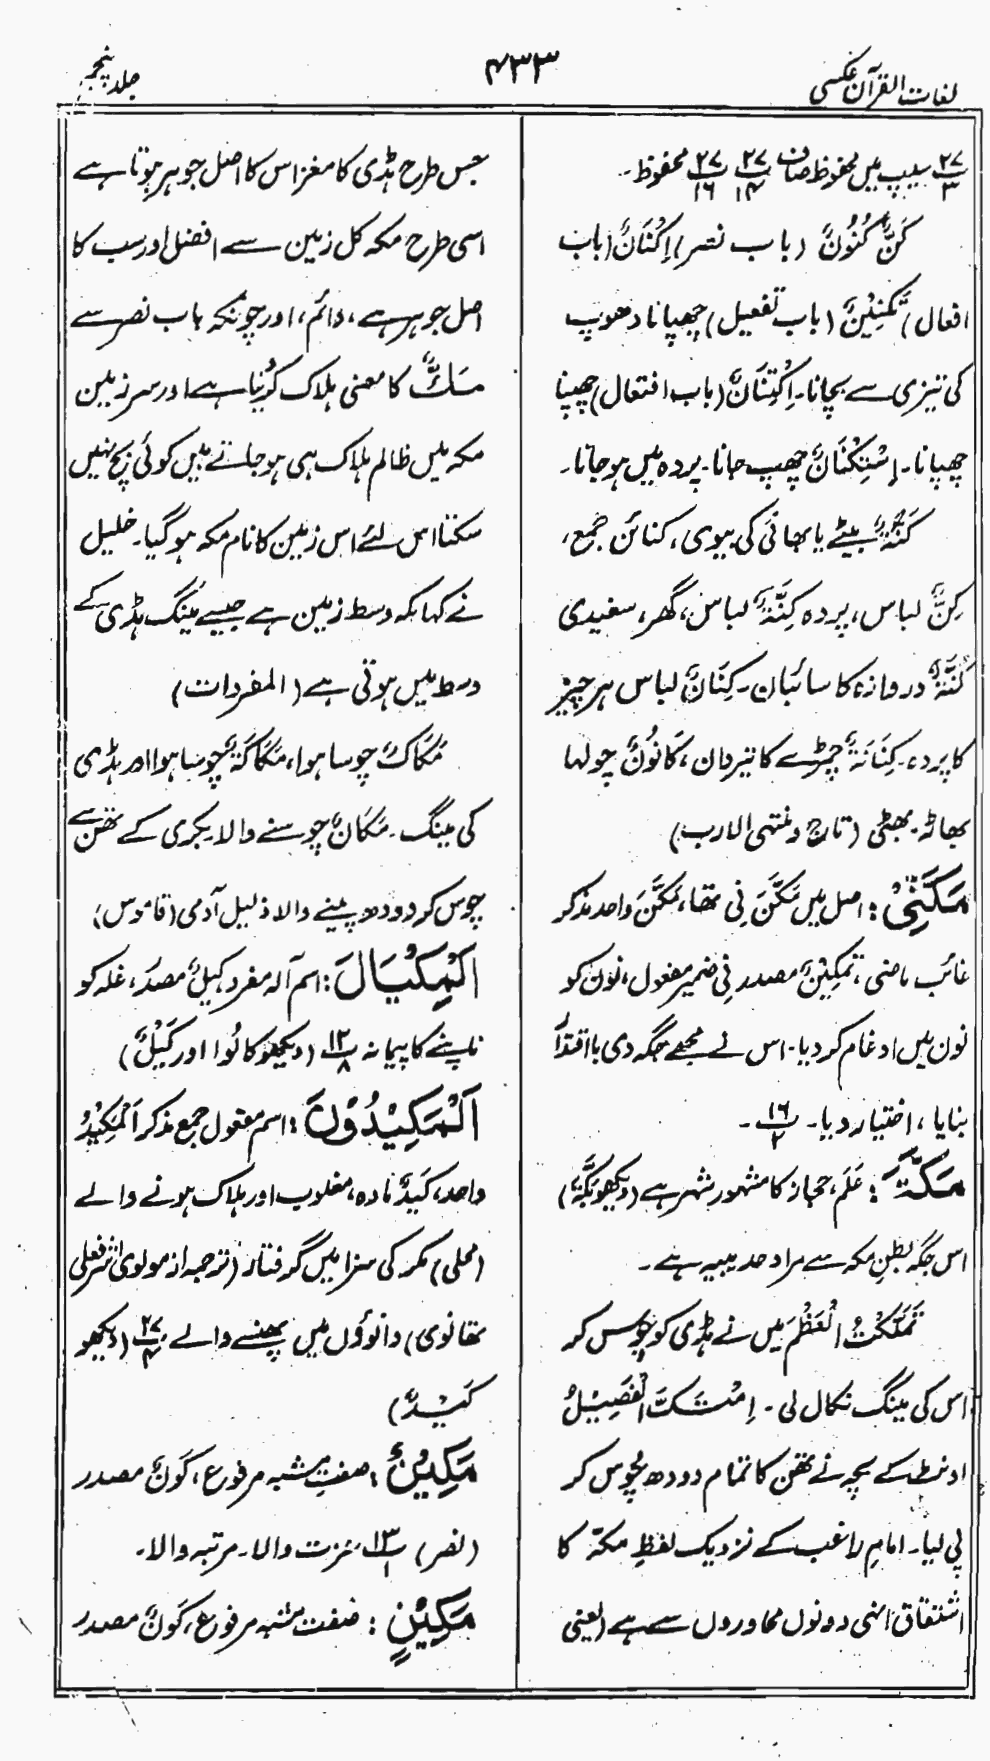 لغات القرآن عکسی
۴۳۳
جلد پنجم
۲۷/۳ سیپ میں محفوظ صاف ۲۷/۱۴ ۲۷/۱۶ محفوظ۔
کَنٌّ کُنُوْنٌ (باب نصر) اِکْنَانٌ (باب
افعال) تَکْنِیْنٌ (باب تفعیل) چھپانا دھوپ
کی تیزی سے بچانا۔ اِکْتِنَانٌ (باب افتعال) چھپنا
چھپانا۔ اِسْتِکْنَانٌ چھپ جانا۔ پردہ میں ہو جانا۔
کَنَّۃٌ بیٹے یا بھائی کی بیوی، کنائن جمع،
کِنٌّ لباس، پردہ کِنَّۃٌ لباس، گھر، سفیدی
کُنَّۃٌ دروازہ کا سائبان۔ کِنَانٌ لباس ہر چیز
کا پردہ۔ کِنَانَۃٌ چمڑے کا تیردان، کَانُوْنٌ چولہا
بھاڑ۔ بھٹی (تاج و منتہی الارب)
مَکَّنِّیْ: اصل میں مَکَّنَ نِی تھا، مَکَّنَ واحد مذکر
غائب ماضی، تَمْکِیْنٌ مصدر نِی ضمیر مفعول، نون کو
نون میں ادغام کر دیا۔ اس نے مجھے جگہ دی با اقتدار
بنایا، اختیار دیا۔ ۱۶/۲۔
مَکَّۃَ: عَلَم، حجاز کا مشہور شہر ہے (دیکھو بَکَّۃَ)
اس جگہ بطنِ مکہ سے مراد حدیبیہ ہے۔
تَمَکَّکْتُ الْعَظْمَ میں نے ہڈی کو چوس کر
اس کی مینگ نکال لی۔ اِمْتَکَّ الْفَصِیْلُ
اونٹ کے بچہ نے تھن کا تمام دودھ چوس کر
پی لیا۔ امام راغب کے نزدیک لفظِ مکّہ کا
اشتقاق انہی دونوں محاوروں سے ہے (یعنی
جس طرح ہڈی کا مغز اس کا اصل جوہر ہوتا ہے
اسی طرح مکہ کل زمین سے افضل اور سب کا
اصل جوہر ہے، دائم، اور چونکہ باب نصر سے
مَکٌّ کا معنی ہلاک کرنا ہے اور سرزمین
مکہ میں ظالم ہلاک ہی ہو جاتے ہیں کوئی بچ نہیں
سکتا اس لئے اس زمین کا نام مکہ ہو گیا۔ خلیل
نے کہا مکہ وسط زمین ہے جیسے مینگ ہڈی کے
وسط میں ہوتی ہے (المفردات)
مُکَاکٌ چوسا ہوا، مُکَاکَۃٌ چوسا ہوا اور ہڈی
کی مینگ۔ مَکَّانٌ چوسنے والا۔ بکری کے تھن سے
چوس کر دودھ پینے والا ذلیل آدمی (قاموس)
اَلْمِکْیَالَ: اسم آلہ مفرد کَیْلٌ مصدر، غلہ کو
ناپنے کا پیمانہ ۱۲/۸، (دیکھو کَالُوْا اور کَیْلٌ)
اَلْمَکِیْدُوْنَ: اسم مفعول جمع مذکر اَلْمَکِیْدُ
واحد، کَیْدٌ مادہ، مغلوب اور ہلاک ہونے والے
(محلی) مکر کی سزا میں گرفتار (ترجمہ از مولوی اشرفعلی
تھانوی) دانوؤں میں پھنسنے والے ۲۷/۴ (دیکھو
کَیْدٌ)
مَکِیْنٌ: صفتِ مشبہ مرفوع، کَوْنٌ مصدر
(نصر) ۱۳/۱ عزت والا۔ مرتبہ والا۔
مَکِیْنٍ: صفت مشبہ مرفوع، کَوْنٌ مصدر